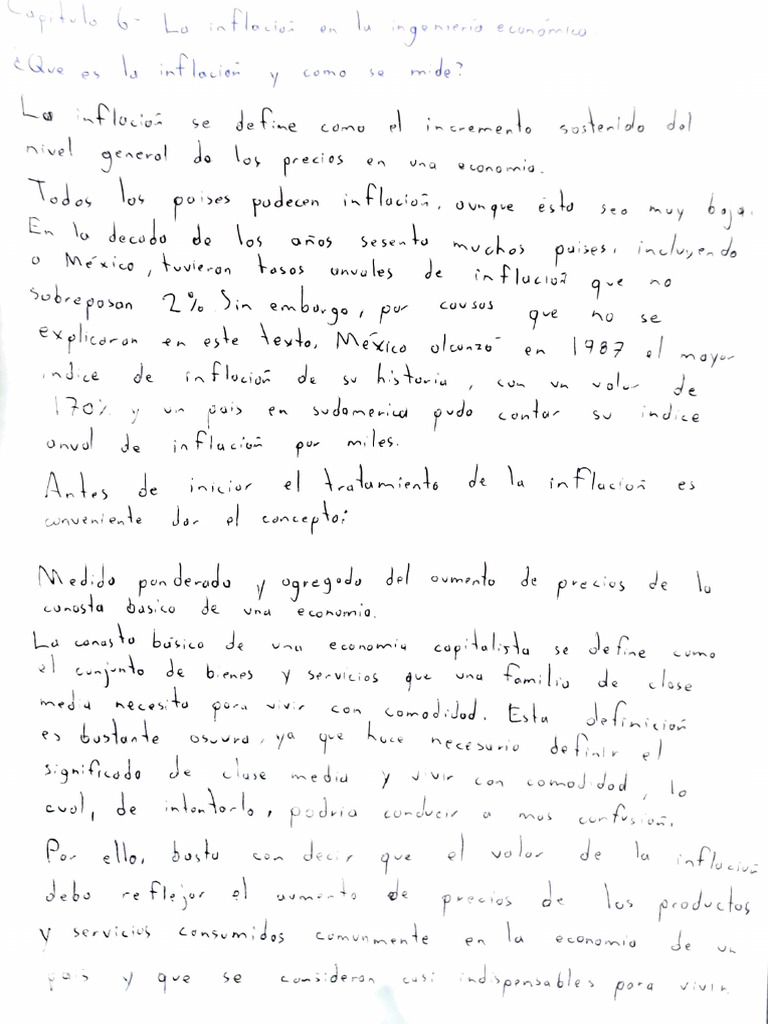 Capitulo 6- La inflación en la ingenieria económica.
¿Que es la inflación y como se mide?
La inflación se define como el incremento sostenido del
nivel general de los precios en una economia.
Todos los paises padecen inflación, aunque ésta sea muy baja.
En la decada de los años sesenta muchos paises, incluyendo
a México, tuvieron tasas anuales de inflación que no
sobrepasan 2% Sin embargo, por causas que no se
explicaran en este texto, México alcanzó en 1987 el mayor
indice de inflación de su historia, con un valor de
170% y un pais en sudamerica pudo contar su indice
anual de inflación por miles.
Antes de iniciar el tratamiento de la inflación es
conveniente dar el concepto:
Medida ponderada y agregada del aumento de precios de la
canasta basica de una economia.
La canasta básica de una economia capitalista se define como
el conjunto de bienes y servicios que una familia de clase
media necesita para vivir con comodidad. Esta definición
es bastante oscura, ya que hace necesario definir el
significado de clase media y vivir con comodidad, lo
cual, de intentarlo, podria conducir a mas confusión.
Por ello, basta con decir que el valor de la inflación
debe reflejar el aumento de precios de los productos
y servicios consumidos comunmente en la economia de un
pais y que se consideran casi indispensables para vivir.